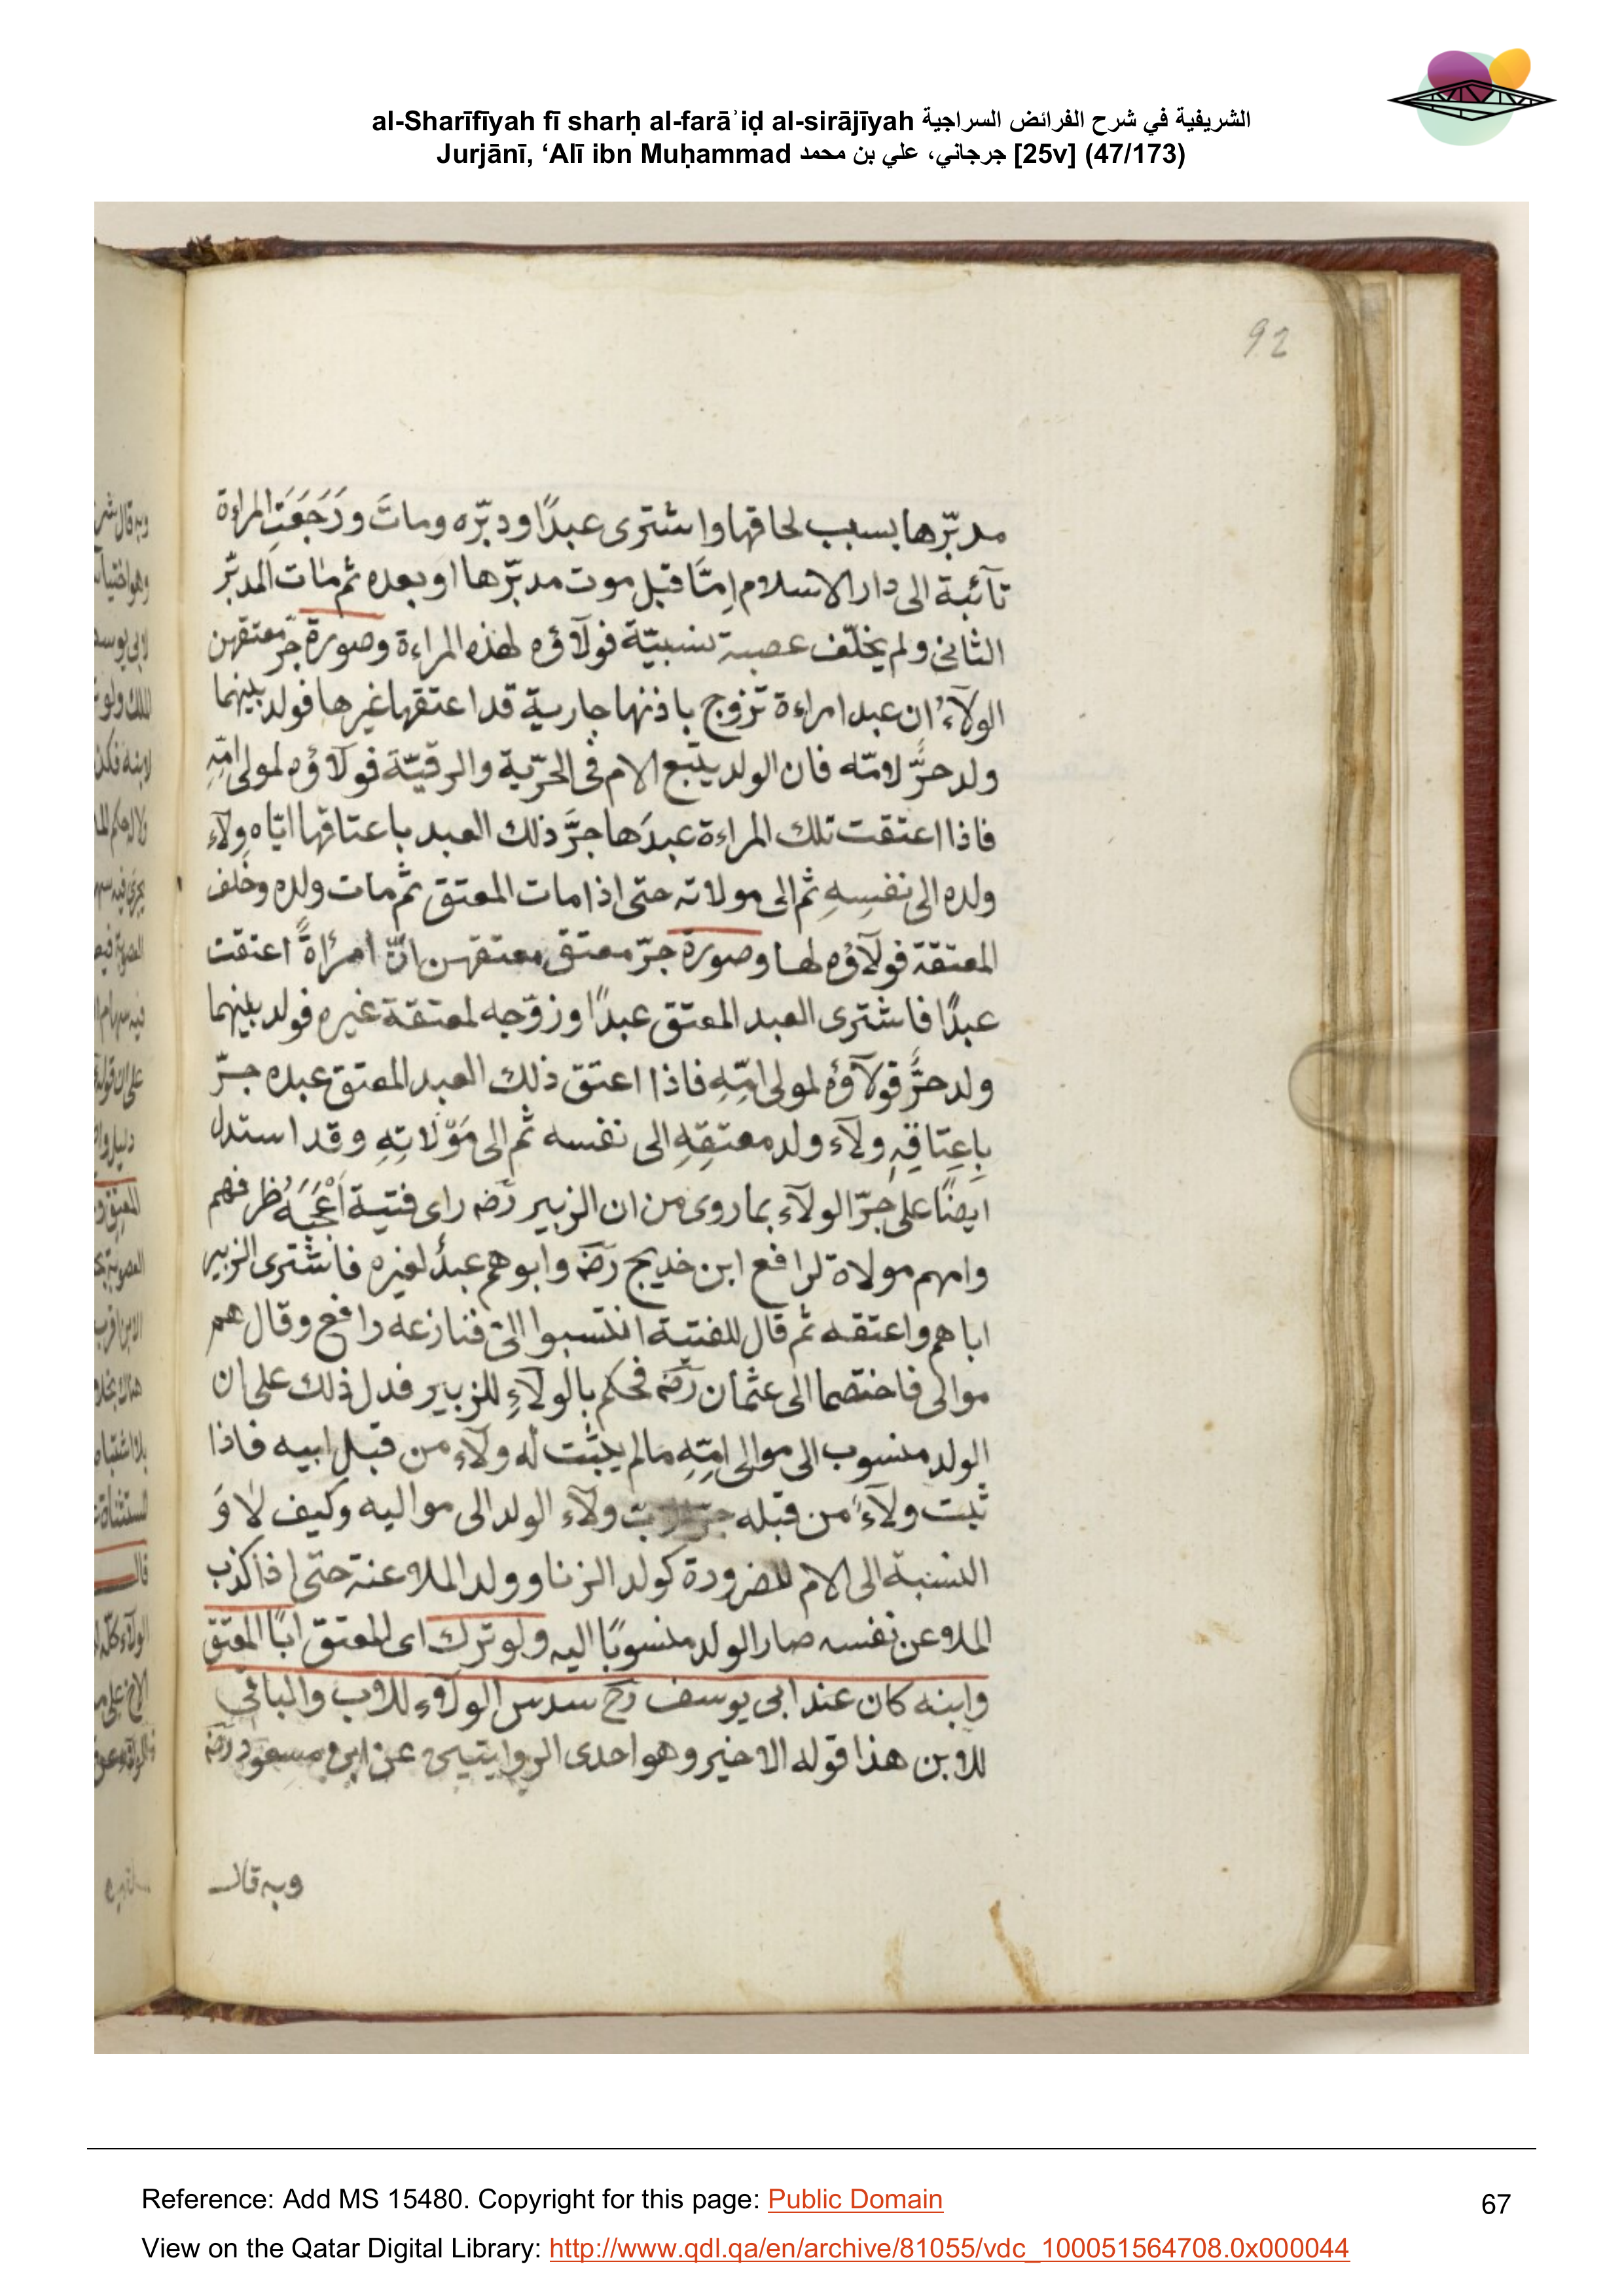 al-Sharīfīyah fī sharḥ al-farāʾiḍ al-sirājīyah الشريفية في شرح الفرائض السراجية
Jurjānī, ‘Alī ibn Muḥammad جرجاني، علي بن محمد [25v] (47/173)
92
مدبّرها بسبب لحاقها واشترى عبدًا ودبّره وماتَ ورَجَعَتِ المراءة
تآئبة الى دار الاسلام امّا قبل موت مدبّرها او بعده ثم مات المدبّر
الثانى ولم يخلّف عصبة نسبيّة فولآؤه لهذه المراءة وصورة جرّ معتقهن
الولآء ان عبد امراءة تزوج باذنها جارية قد اعتقها غيرها فولد بينهما
ولد حرٌّ لامّه فان الولد يتبع الام فى الحرّية والرقيّة فولآؤه لمولى امّهِ
فاذا اعتقت تلك المراءة عبدَها جرَّ ذلك العبد باعتاقها ايّاه ولآء
ولده الى نفسِهِ ثم الى مولاته حتى اذا مات المعتق ثم مات ولده وخلف
المعتقة فولآؤه لها وصورة جرّ معتق معتقهن انّ امرأةً اعتقت
عبدًا فاشترى العبد المعتق عبدًا وزوّجه لمعتقة غيره فولد بينهما
ولد حرٌّ فولآؤه لمولى امّهِ فاذا اعتق ذلك العبد المعتق عبده جرّ
بِاعتاقِهِ ولآء ولد معتقِهِ الى نفسه ثم الى مَوْلاتِهِ وقد استدل
ايضًا على جرّ الولآء بما روى من ان الزبير رضه راى فتية اَعْجَبَهُ ظرفهم
وامهم مولاة لرافع ابن خديج رضه وابوهم عبدٌ لغيره فاشترى الزبير
اباهم واعتقه ثم قال للفتية انتسبوا الىّ فنازعه رافع وقال هم
موالى فاختصما الى عثمان رضه فحكم بالولآءِ للزبير فدل ذلك على ان
الولد منسوب الى موالى امّهِ مالم يثبت له ولآء من قبل ابيه فاذا
ثبت ولآءٌ من قبله ولآء الولد الى مواليه وكيف لا وَ
النسبة الى الام للضرورة كولد الزنا وولد الملاعنة حتى اذا كذب
الملاعن نفسه صار الولد منسوبًا اليه ولو ترك اى المعتق ابًا المعتق
وابنه كان عند ابى يوسف رح سدس الولآء للاب والباقى
للابن هذا قوله الاخير وهو احدى الروايتين عن ابن مسعود رضه
وبه قال
Reference: Add MS 15480. Copyright for this page: Public Domain
67
View on the Qatar Digital Library: http://www.qdl.qa/en/archive/81055/vdc_100051564708.0x000044